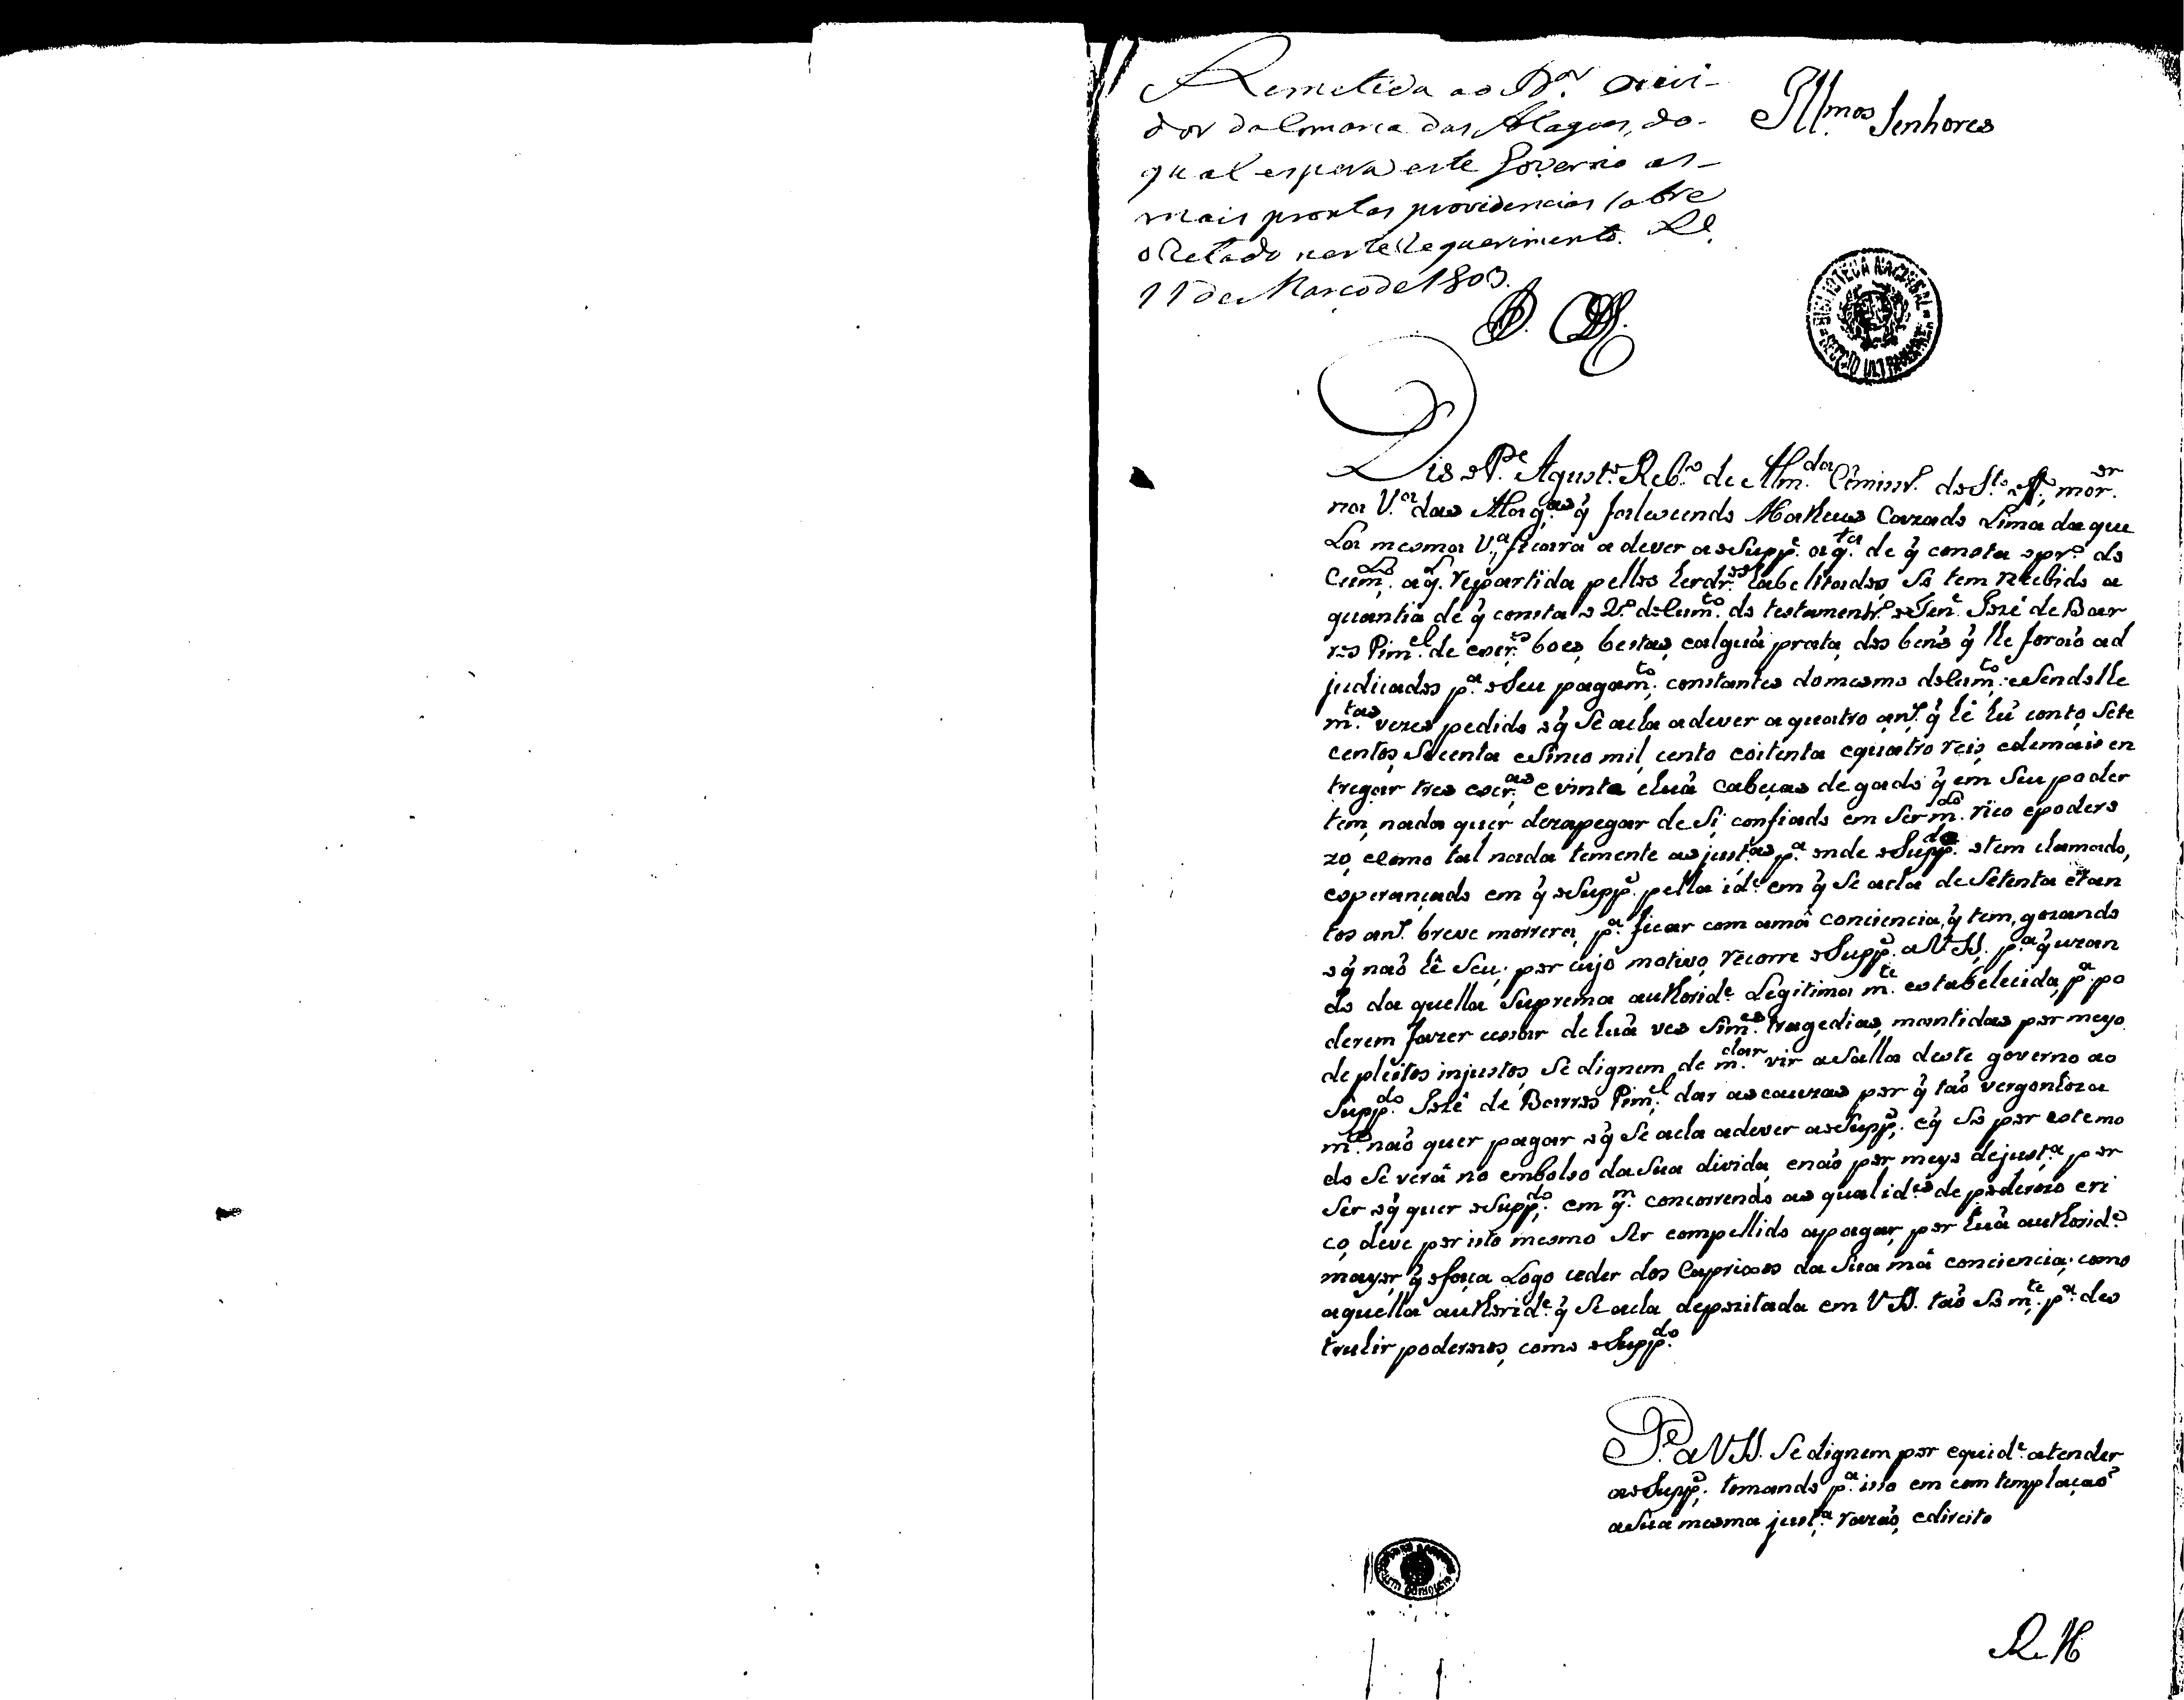 Remetida ao D.or Ouvi-
dor da Comarca das Alagoas, do-
qual espera este Governo as-
mais promtas providencias sobre
o Relado neste Requerimento. Re.
11 de Março de 1803.
Ill.mos Senhores
BIBLIOTECA NACIONAL
SECÇÃO ULTRAMARINA
Dis o P.e Agust.o Reb.o de Alm.da Comisr.o do S.to Off.o, mor.or
na V.a das Alag.as q̃ falescendo Matheus Cazado Lima da que
la mesma V.a, ficara a dever ao Supp.e a q.ta de q̃ consta o pr.o do
cum.to, a q.l repartida pellos herdr.os habelitados, só tem recebido a
quantia de q̃ consta o 2.o docum.to do testamentr.o o Ten.e José de Bar
ros Pim.el de escr.os boes, bestas, e algũa prata, dos bens q̃ lhe foraõ ad
judicados p.a o seu pagam.to constantes do mesmo docum.to: e sendolhe
m.tas vezes pedido o q̃ se acha a dever a quatro an.s q̃ hé hũ conto, sete
centos, secenta e sinco mil, cento e oitenta e quatro reis, e demais en
tregar tres escr.as e vinte e huã cabeças de gado q̃ em seu poder
tem, nada quer dezapegar de si, confiado em ser m.do rico e podero
zo, e como tal nada temente as just.as p.a onde o Supp.do o tem chamado,
esperançado em q̃ o Supp.e pella id.e em q̃ se acha de setenta e tan
tos an.s breve morrerá, p.a ficar com a má conciencia, q̃ tem, gozando
o q̃ naõ hé seu; por cujo motivo, recorre o Supp.e a V.SS. p.a q̃ uzan
do da quella suprema authorid.e legitima m.te estabelecida, p.a po
derem fazer cessar de huã ves sim.es tragedias, mantidas por meyo
de pleitos injustos, se dignem de m.dar vir a salla deste governo ao
Supp.do José de Barros Pim.el, dar as cauzas por q̃ taõ vergonhoza
m.te naõ quer pagar o q̃ se acha a dever ao Supp.e, e q̃ só por este mo
do se verá no embolso da sua divida, e naõ por meyo de just.a, por
ser o q̃ quer o Supp.do, em q.m concorrendo as qualid.es de poderozo e ri
co, deve por isto mesmo ser compellido a pagar, por huã authorid.e
mayor, q̃ o faça logo ceder dos caprixos da sua má conciencia; como
aquella authorid.e q̃ se acha depozitada em V.SS. taõ só m.te p.a des
truhir poderozos, como o Supp.do
P.e a V.SS. se dignem por equid.e atender
ao Supp.e, tomando p.a isso em com templaçaõ
a sua mesma just.a, razaõ, e direito
R. M.